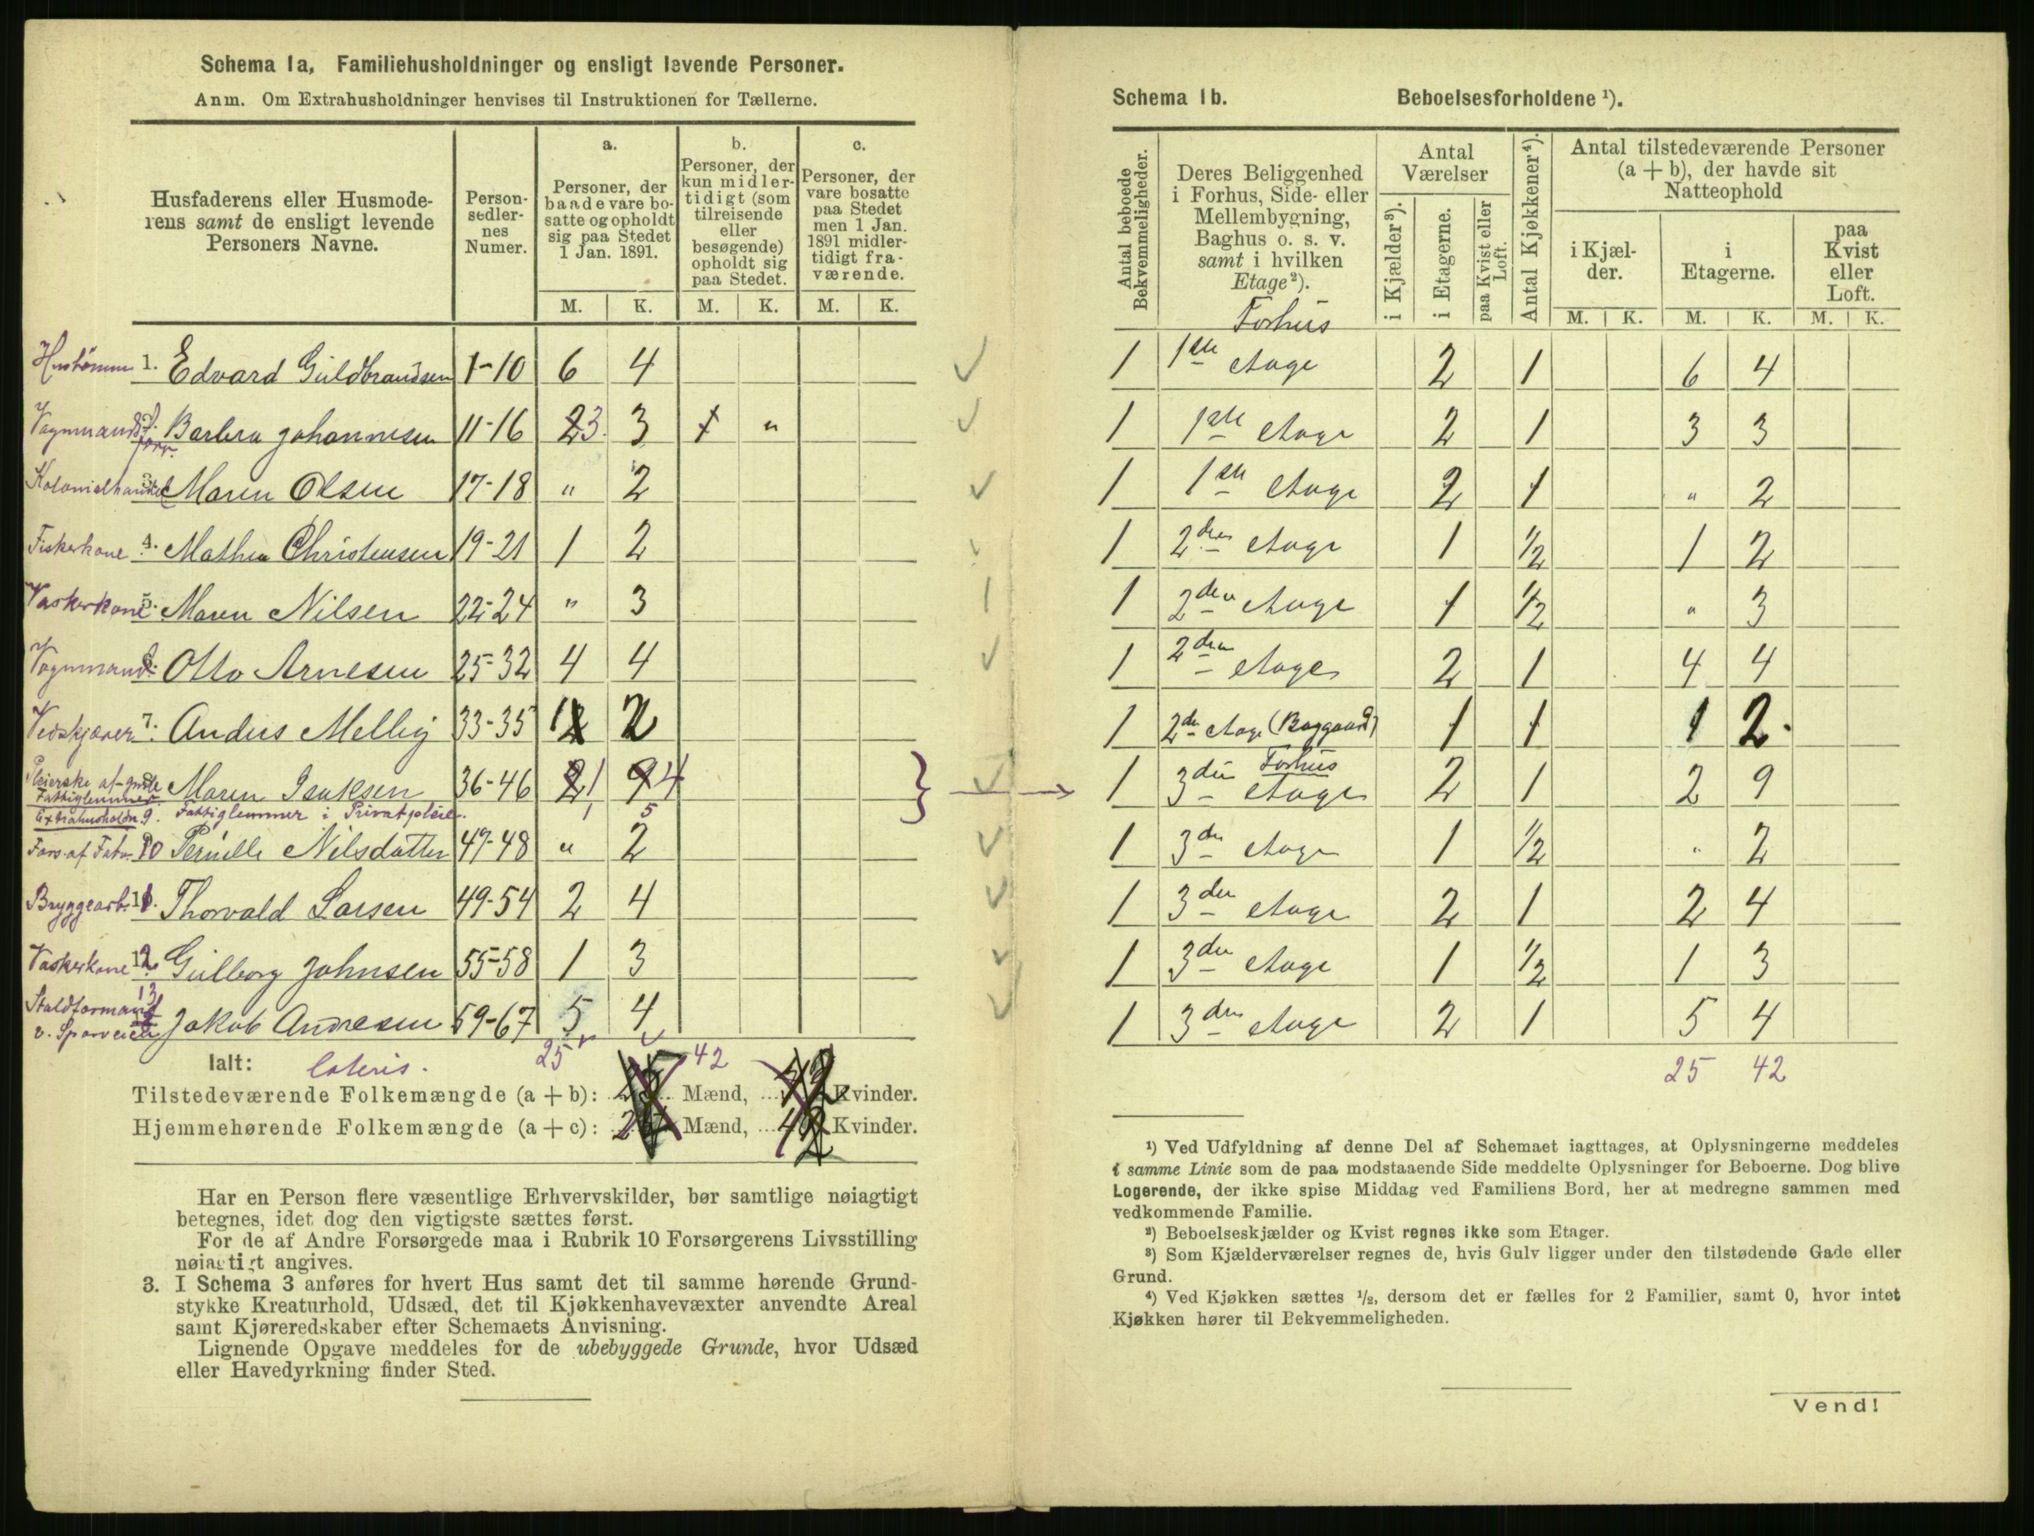 Schema 1a, Familiehusholdninger og ensligt levende Personer.
Anm. Om Extrahusholdninger henvises til Instruktionen for Tællerne.
Husfaderens eller Husmoderens samt de ensligt levende Personers Navne. | Personsedlernes Numer. | a. Personer, der baade vare bosatte og opholdt sig paa Stedet 1 Jan. 1891. | b. Personer, der kun midlertidigt (som tilreisende eller besøgende) opholdt sig paa Stedet. | c. Personer, der vare bosatte paa Stedet men 1 Jan. 1891 midlertidigt fraværende.
M. | K. | M. | K. | M. | K.
Hustømm 1. Edvard Guldbrandsen | 1-10 | 6 | 4
Vognmandsf. forr. 2. Barbra Johannesen | 11-16 | 2 3. | 3 | 1 | "
Kolonialhandel 3. Maren Olsen | 17-18 | " | 2
Fiskerkone 4. Mathea Christensen | 19-21 | 1 | 2
Vaskerkone 5. Maren Nilsen | 22-24 | " | 3
Vognmand 6. Otto Arnesen | 25-32 | 4 | 4
Vedskjærer 7. Anders Mellig | 33-35 | 1 2 | 2
Pleierske af gmle Fattiglemmer 8. Maren Isaksen | 36-46 | 2 1 | 9 4
Extrahusholdn 9. Fattiglemmer i Privatpleie. | 1 | 5
Fors. af Fatv. 10 Pernille Nilsdatter | 47-48 | " | 2
Bryggearb. 11. Thorvald Larsen | 49-54 | 2 | 4
Vaskerkone 12. Gulborg Johnsen | 55-58 | 1 | 3
Staldformand v. Sporveien 13 Jakob Andresen | 59-67 | 5 | 4
Ialt: lateris. 25 42
Tilstedeværende Folkemængde (a + b): Mænd, Kvinder.
Hjemmehørende Folkemængde (a + c): Mænd, Kvinder.
Har en Person flere væsentlige Erhvervskilder, bør samtlige nøiagtigt
betegnes, idet dog den vigtigste sættes først.
For de af Andre Forsørgede maa i Rubrik 10 Forsørgerens Livsstilling
nøiagtigt angives.
3. I Schema 3 anføres for hvert Hus samt det til samme hørende Grund-
stykke Kreaturhold, Udsæd, det til Kjøkkenhavevæxter anvendte Areal
samt Kjøreredskaber efter Schemaets Anvisning.
Lignende Opgave meddeles for de ubebyggede Grunde, hvor Udsæd
eller Havedyrkning finder Sted.
Schema 1b. Beboelsesforholdene ¹).
Antal beboede Bekvemmeligheder. | Deres Beliggenhed i Forhus, Side- eller Mellembygning, Baghus o. s. v. samt i hvilken Etage ²). | Antal Værelser | Antal Kjøkkener ⁴). | Antal tilstedeværende Personer (a + b), der havde sit Natteophold
i Kjælder ³). | i Etagerne. | paa Kvist eller Loft. | i Kjælder. | i Etagerne. | paa Kvist eller Loft.
M. | K. | M. | K. | M. | K.
Forhus
1 | 1ste Etage | 2 | 1 | 6 | 4
1 | 1ste Etage | 2 | 1 | 3 | 3
1 | 1ste Etage | 2 | 1 | " | 2
1 | 2den Etage | 1 | 1/2 | 1 | 2
1 | 2den Etage | 1 | 1/2 | " | 3
1 | 2den Etage | 2 | 1 | 4 | 4
1 | 2de Etage (Baggaard) | 1 | 1 | 1 | 2.
1 | 3die Forhus Etage | 2 | 1 | 2 | 9
1 | 3die Etage | 1 | 1/2 | " | 2
1 | 3die Etage | 2 | 1 | 2 | 4
1 | 3die Etage | 1 | 1/2 | 1 | 3
1 | 3die Etage | 2 | 1 | 5 | 4
25 42
¹) Ved Udfyldning af denne Del af Schemaet iagttages, at Oplysningerne meddeles
i samme Linie som de paa modstaaende Side meddelte Oplysninger for Beboerne. Dog blive
Logerende, der ikke spise Middag ved Familiens Bord, her at medregne sammen med
vedkommende Familie.
²) Beboelseskjælder og Kvist regnes ikke som Etager.
³) Som Kjælderværelser regnes de, hvis Gulv ligger under den tilstødende Gade eller
Grund.
⁴) Ved Kjøkken sættes ¹/₂, dersom det er fælles for 2 Familier, samt 0, hvor intet
Kjøkken hører til Bekvemmeligheden.
Vend!